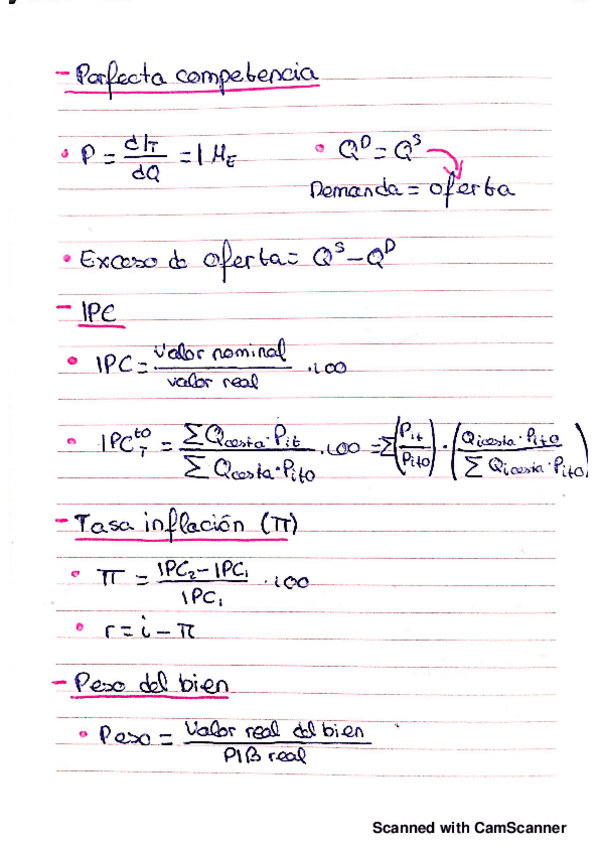 - Perfecta competencia
• P = dIT/dQ = IME • Q^D = Q^S
Demanda = oferta
• Exceso de oferta = Q^S - Q^D
- IPC
• IPC = valor nominal / valor real · 100
• IPC_T^to = ΣQcesta·Pit / ΣQcesta·Pito · 100 = Σ(Pit/Pito) · (Qicesta·Pito / ΣQicesta·Pito)
- Tasa inflación (π)
• π = IPC₂ - IPC₁ / IPC₁ · 100
• r = i - π
- Peso del bien
• Peso = Valor real del bien / PIB real
Scanned with CamScanner